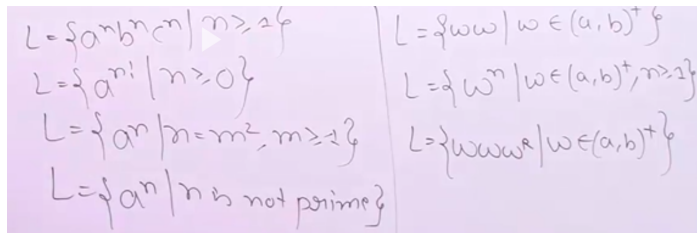 L={aⁿbⁿcⁿ | n≥1}
L={aⁿ! | n≥0}
L={aⁿ | n=m², m≥1}
L={aⁿ | n is not prime}
L={ww | w∈(a,b)⁺}
L={wⁿ | w∈(a,b)⁺, n≥1}
L={wwwᴿ | w∈(a,b)⁺}